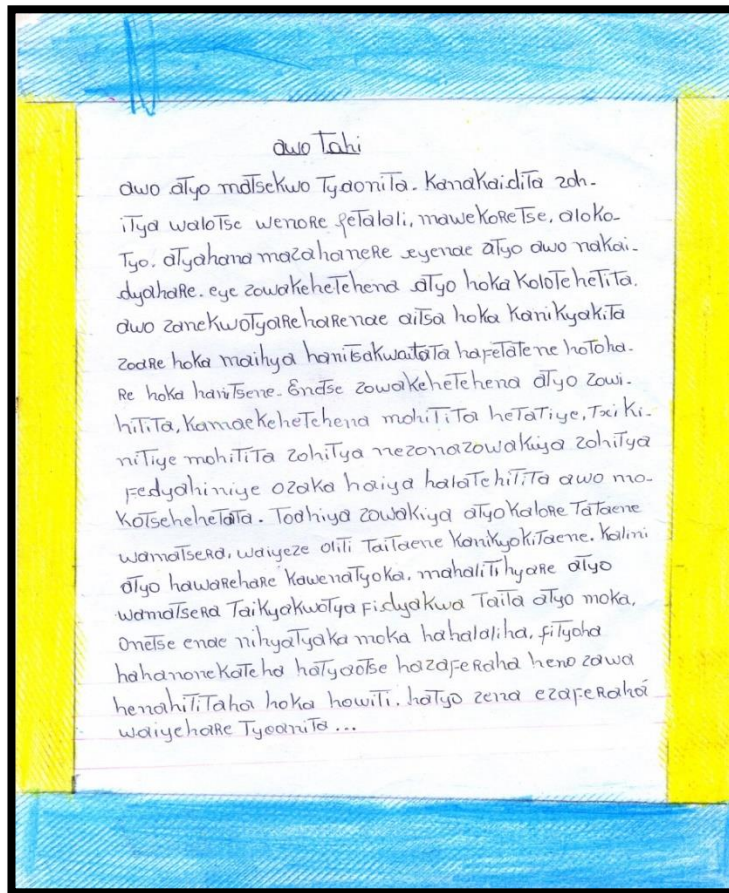 awo Tahi
awo atyo matsekwo Tyaonita. Kanakaidita zoh-
itya walotse wenore fetalali, mawekoretse, aloko-
Tyo. atyahana mazahanere eyenae atyo awo nakai-
dyahare. eye zowakehetehena atyo hoka Kolotehetita.
awo zanekwotyareharenae aitsa hoka Kanikyakita
zoare hoka maihya hanitsakwaitata hafetatene hotoha-
Re hoka hanitsene. Endse zowakehetehena atyo zowi-
hitita, Kamaekehetehena mohitita hetatiye, Txi ki-
nitiye mohitita zohitya nezonazowakiya zohitya
fedyahiniye ozaka haiya halatehitita awo mo-
Kotsehehetata. Toahiya zowakiya atyo Kalore Tataene
wamatsera, waiyeze oliti Taitaene Kanikyokitaene. Kalini
atyo hawareharе Kawenatyoka, mahalitihyare atyo
wamatsera Taikyakwotya fidyakwa Taita atyo moka,
Onetse enae nihyatyaka moka hahalaliha, fityoha
hahanonekateha hatyaotse hazaferaha heno zawa
henahititaha hoka howiti. hatyo zena ezaferahá
waiyehare Tyoanita...